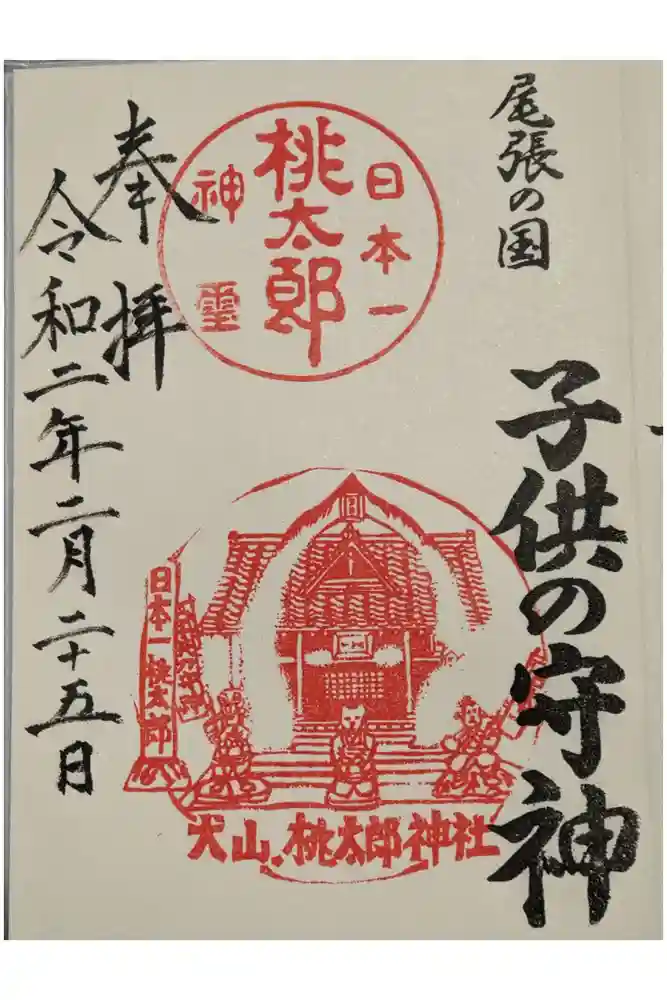 尾張の国
子供の守神
日本一
桃太郎
神霊
日本一桃太郎
犬山、桃太郎神社
奉拝
令和二年二月二十五日